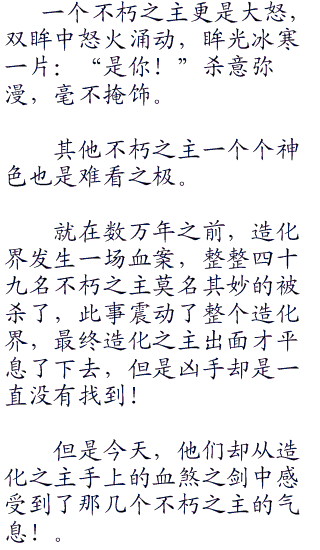 一个不朽之主更是大怒，
双眸中怒火涌动，眸光冰寒
一片：“是你！”杀意弥
漫，毫不掩饰。
其他不朽之主一个个神
色也是难看之极。
就在数万年之前，造化
界发生一场血案，整整四十
九名不朽之主莫名其妙的被
杀了，此事震动了整个造化
界，最终造化之主出面才平
息了下去，但是凶手却是一
直没有找到！
但是今天，他们却从造
化之主手上的血煞之剑中感
受到了那几个不朽之主的气
息！。